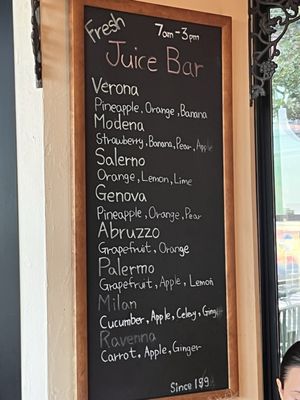 Fresh
7am-3pm
Juice Bar
Verona
Pineapple, Orange, Banana
Modena
Strawberry, Banana, Pear, Apple
Salerno
Orange, Lemon, Lime
Genova
Pineapple, Orange, Pear
Abruzzo
Grapefruit, Orange
Palermo
Grapefruit, Apple, Lemon
Milan
Cucumber, Apple, Celery,
Ravenna
Carrot, Apple, Ginger
Since